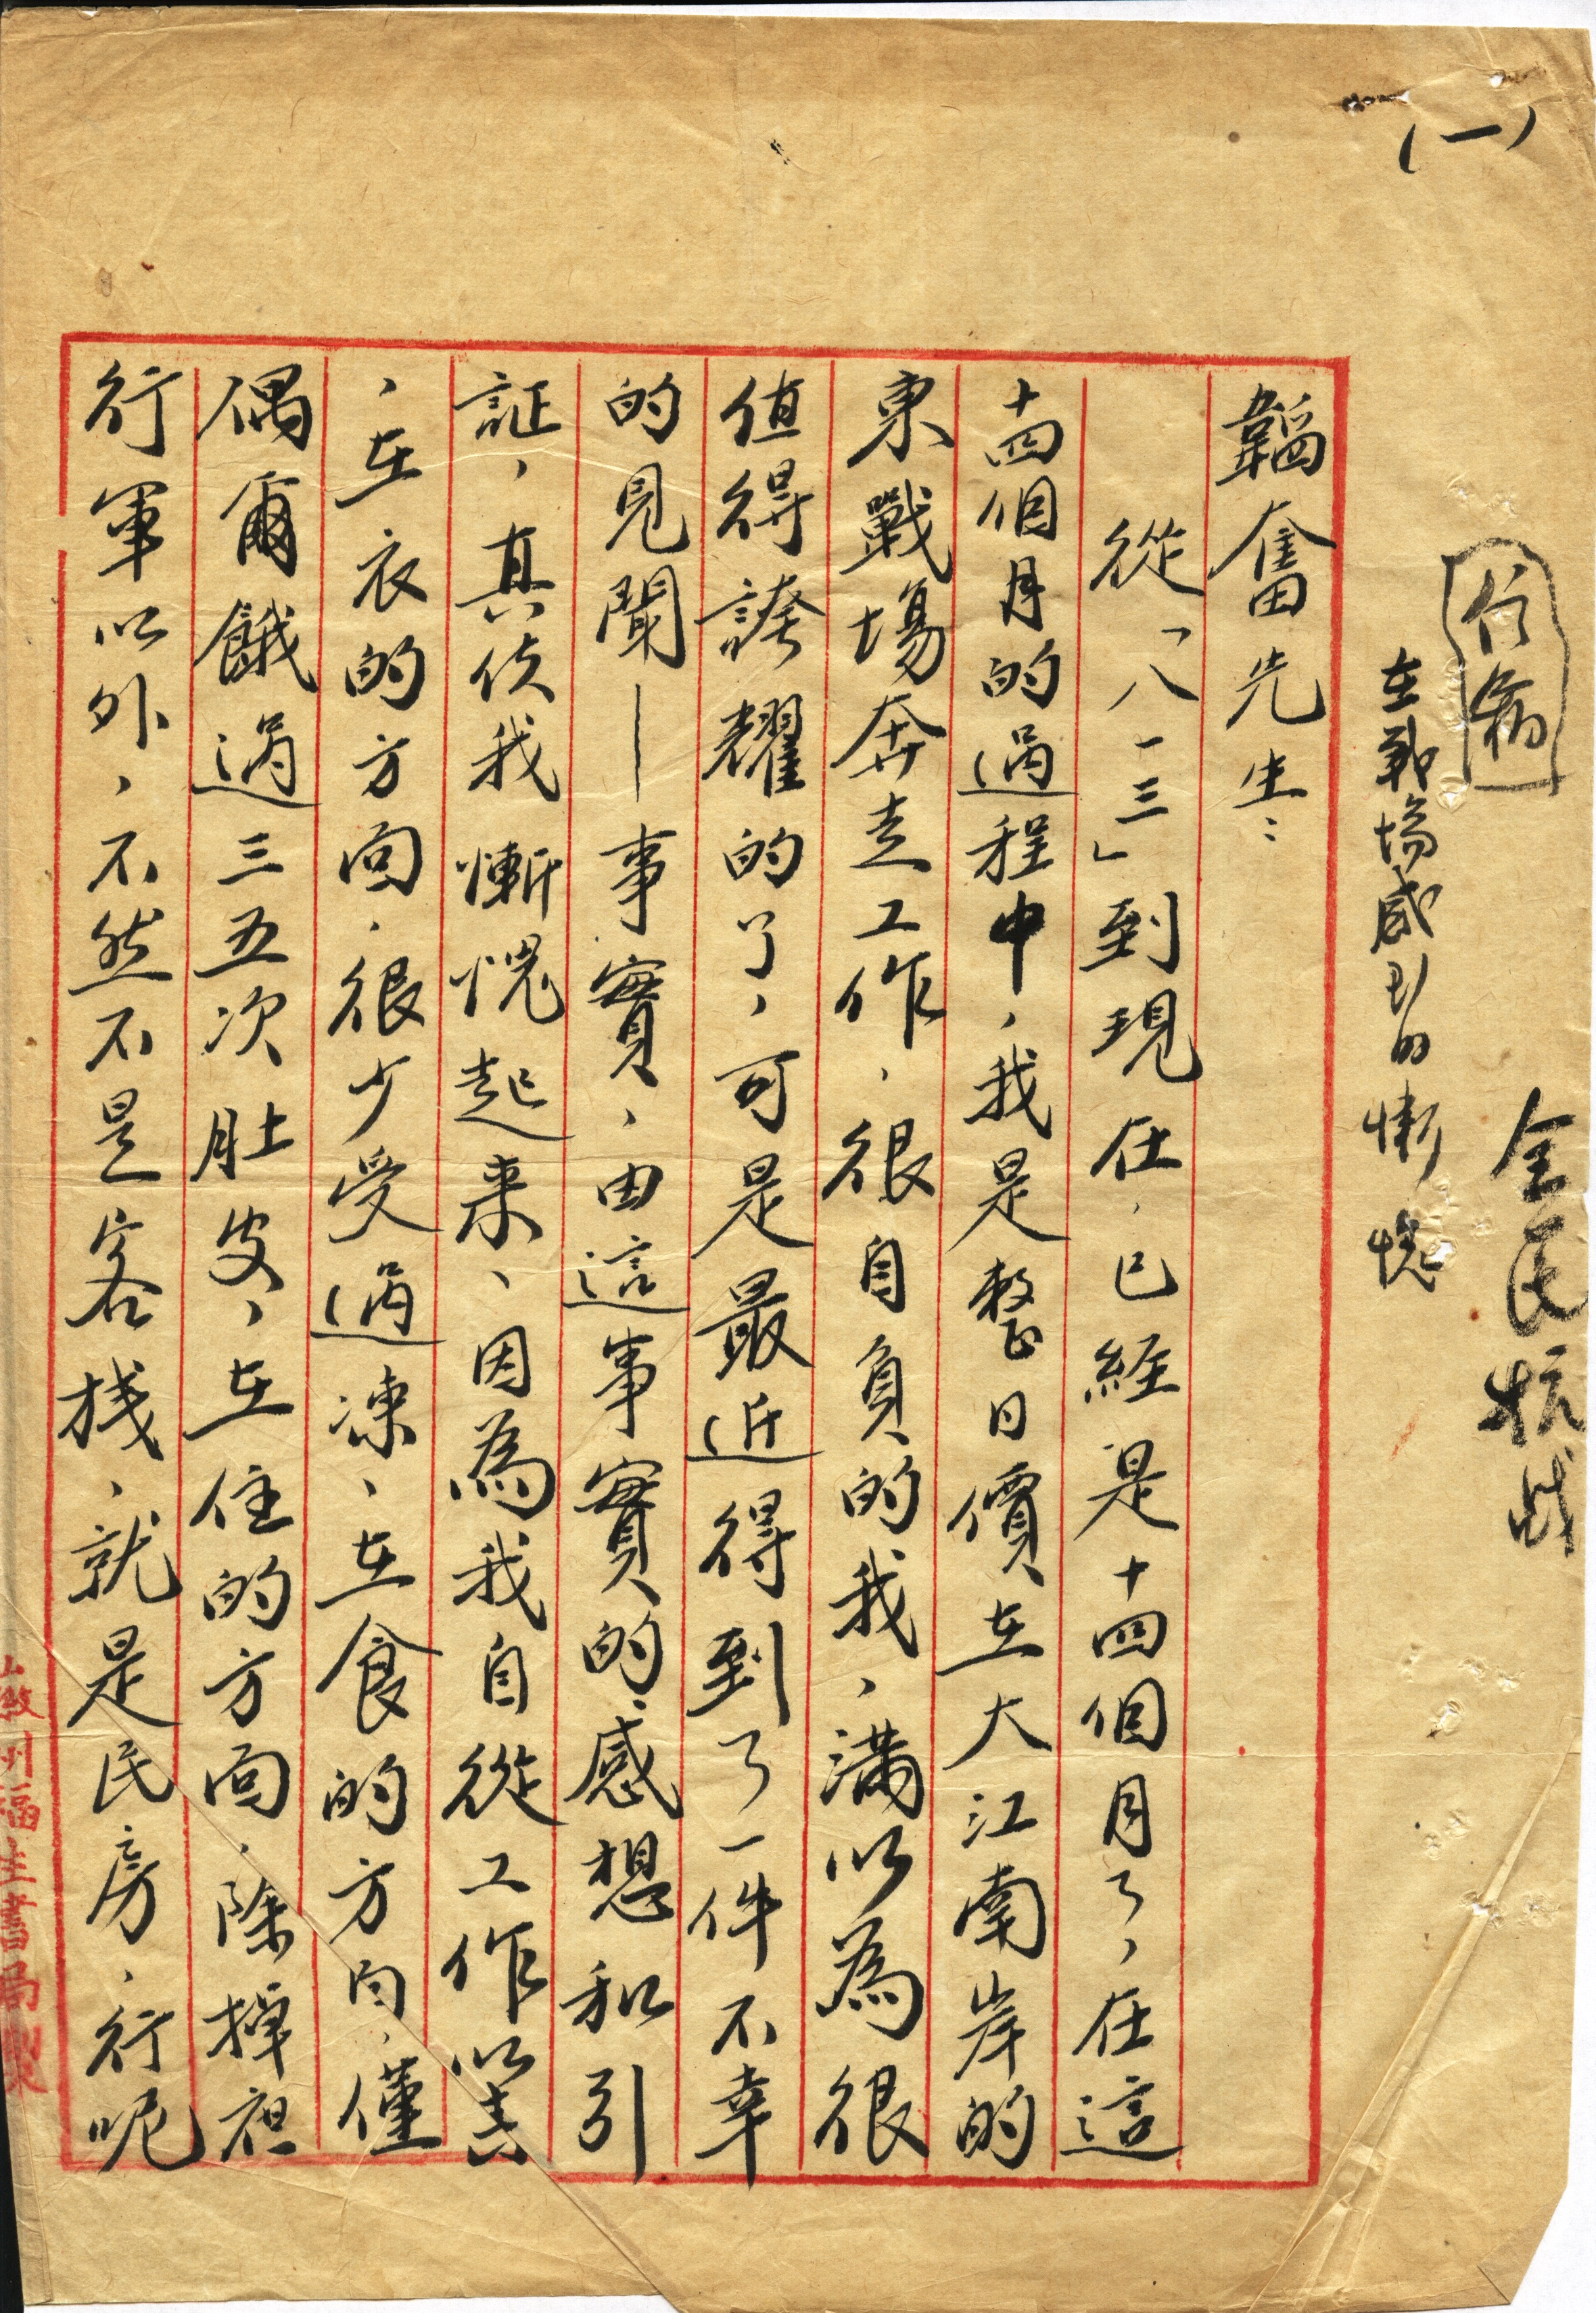 (一)
全民抗战
信箱
在戰塲感到的慚愧
韜奮先生：
從「八一三」到現在，已經是十四個月了，在這
十四個月的過程中，我是整日價在大江南岸的
東戰塲奔走工作，很自負的我，滿以為很
值得誇耀的了，可是最近得到了一件不幸
的見聞—事實，由這事實的感想和引
証，真使我慚愧起來，因為我自從工作以
，在衣的方面，很少受過凍，在食的方向，僅
偶爾餓過三五次肚皮，在住的方面，除掉在
行軍以外，不然不是客栈，就是民房，行呢
徽州福生書局製